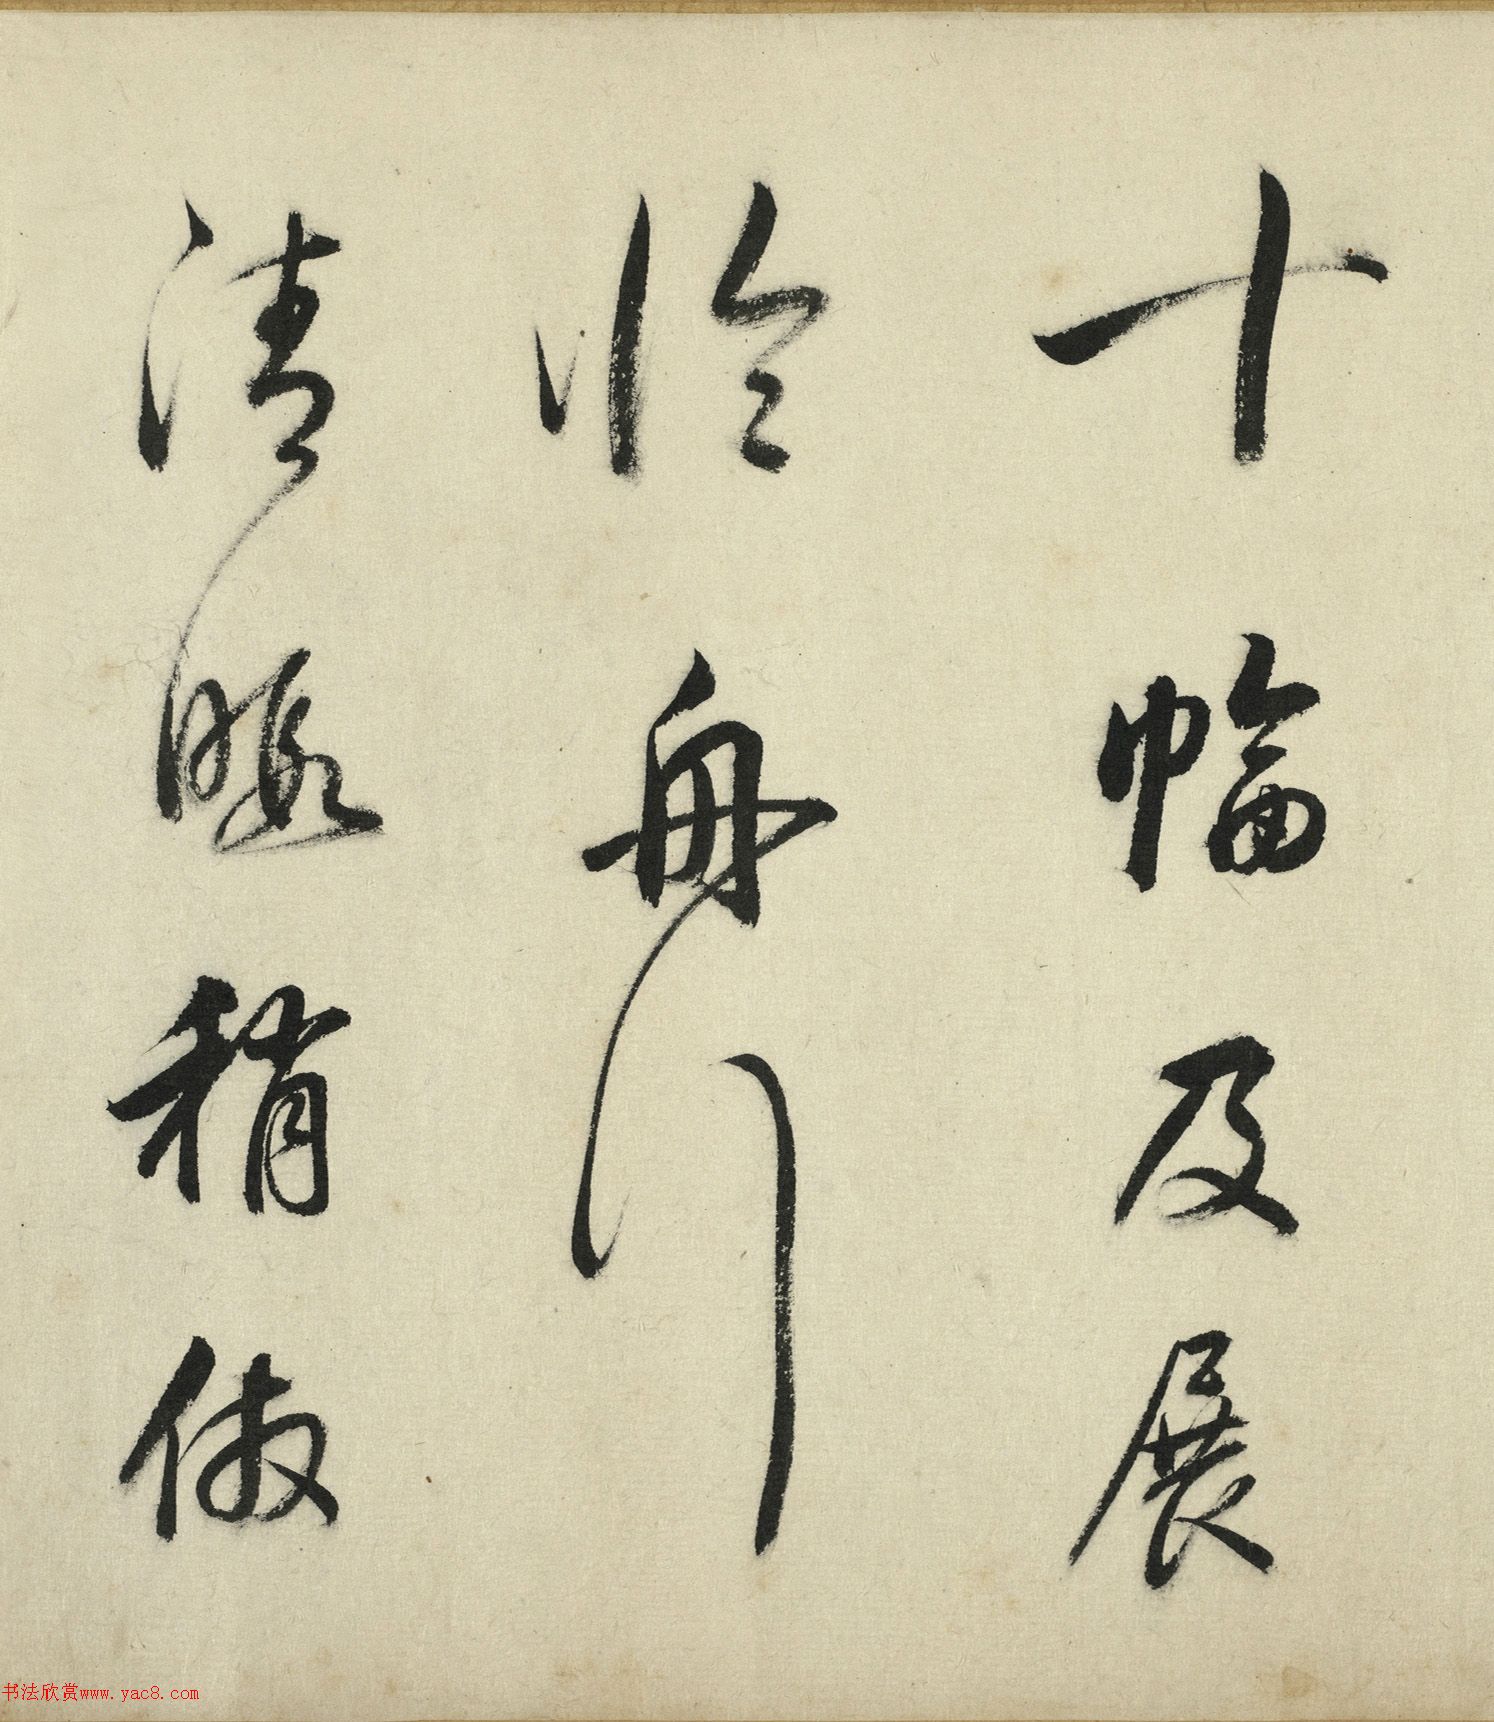 十幅及展
臨舟行
清暇稍倣
书法欣赏www.yac8.com